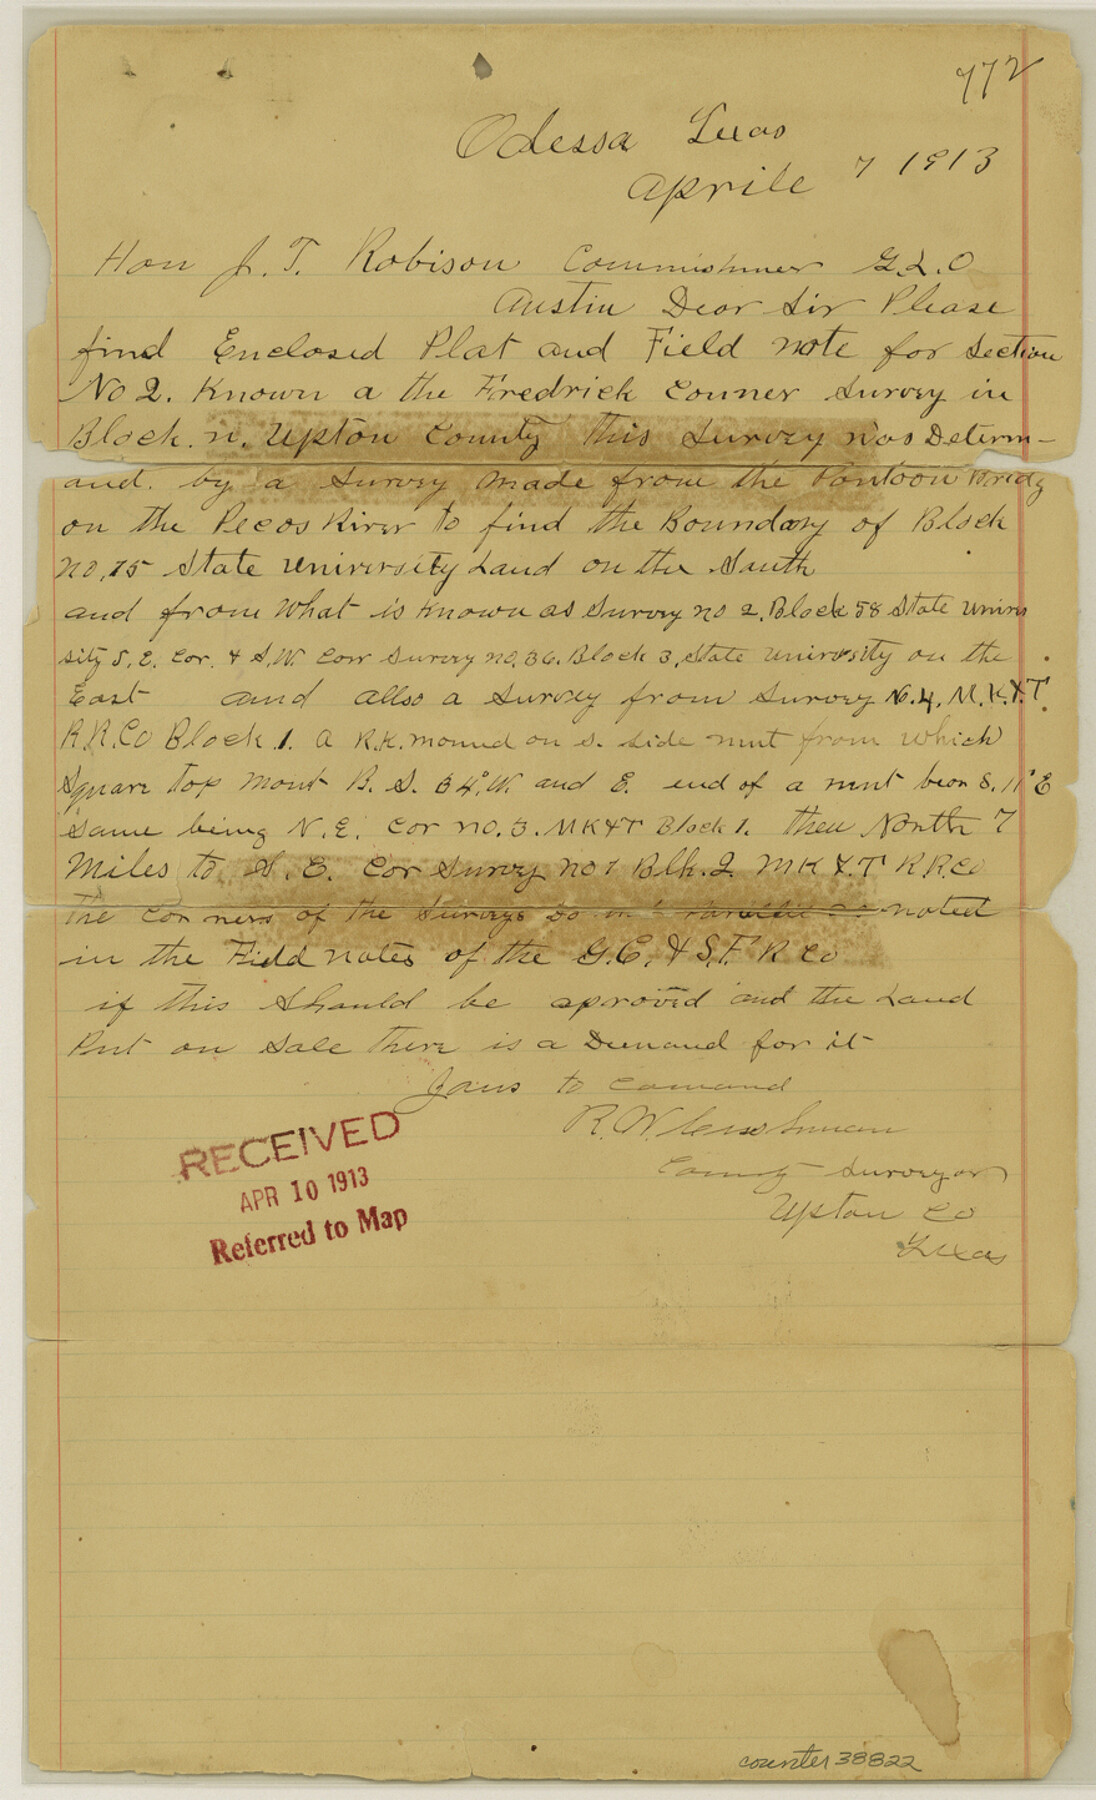 772
Odessa Texas
Aprile 7 1913
Hon J. T. Robison Commishner G.L.O
Austin Dear Sir Please
find Enclosed Plat and Field note for Section
No 2. Known a the Fredrick Conner Survey in
Block. n. Upton County this Survey was Determ-
and. by a Survey made from the Pontoon Bridg
on the Pecos River to find the Boundary of Block
no. 15 State University Land on the South
and from what is known as Survey no 2. Block 58 State Univer
sity S. E. Cor. & S.W. Corr Survey no. 36. Block 3, State University on the
East and allso a Survey from Survey No. 4. M.K.&T.
R.R.Co Block 1. a R.K. mound on S. side mnt from which
Square top Mont B. S. 34°. W. and E. end of a mnt bears S. 11° E
same being N. E. Cor no. 3. MK&T Block 1. then North 7
Miles to S. E. Cor Survey no 1 Blk. 2. MK&T R R.Co
the corners of the Surveys Do as noted
in the Field notes of the G.C. & S.F. R Co
if this should be aproved and the Land
Put on Sale there is a Demand for it
Yaurs to Comand
R. W.
County Surveyor
Upton Co
Texas
RECEIVED
APR 10 1913
Referred to Map
counter 38822